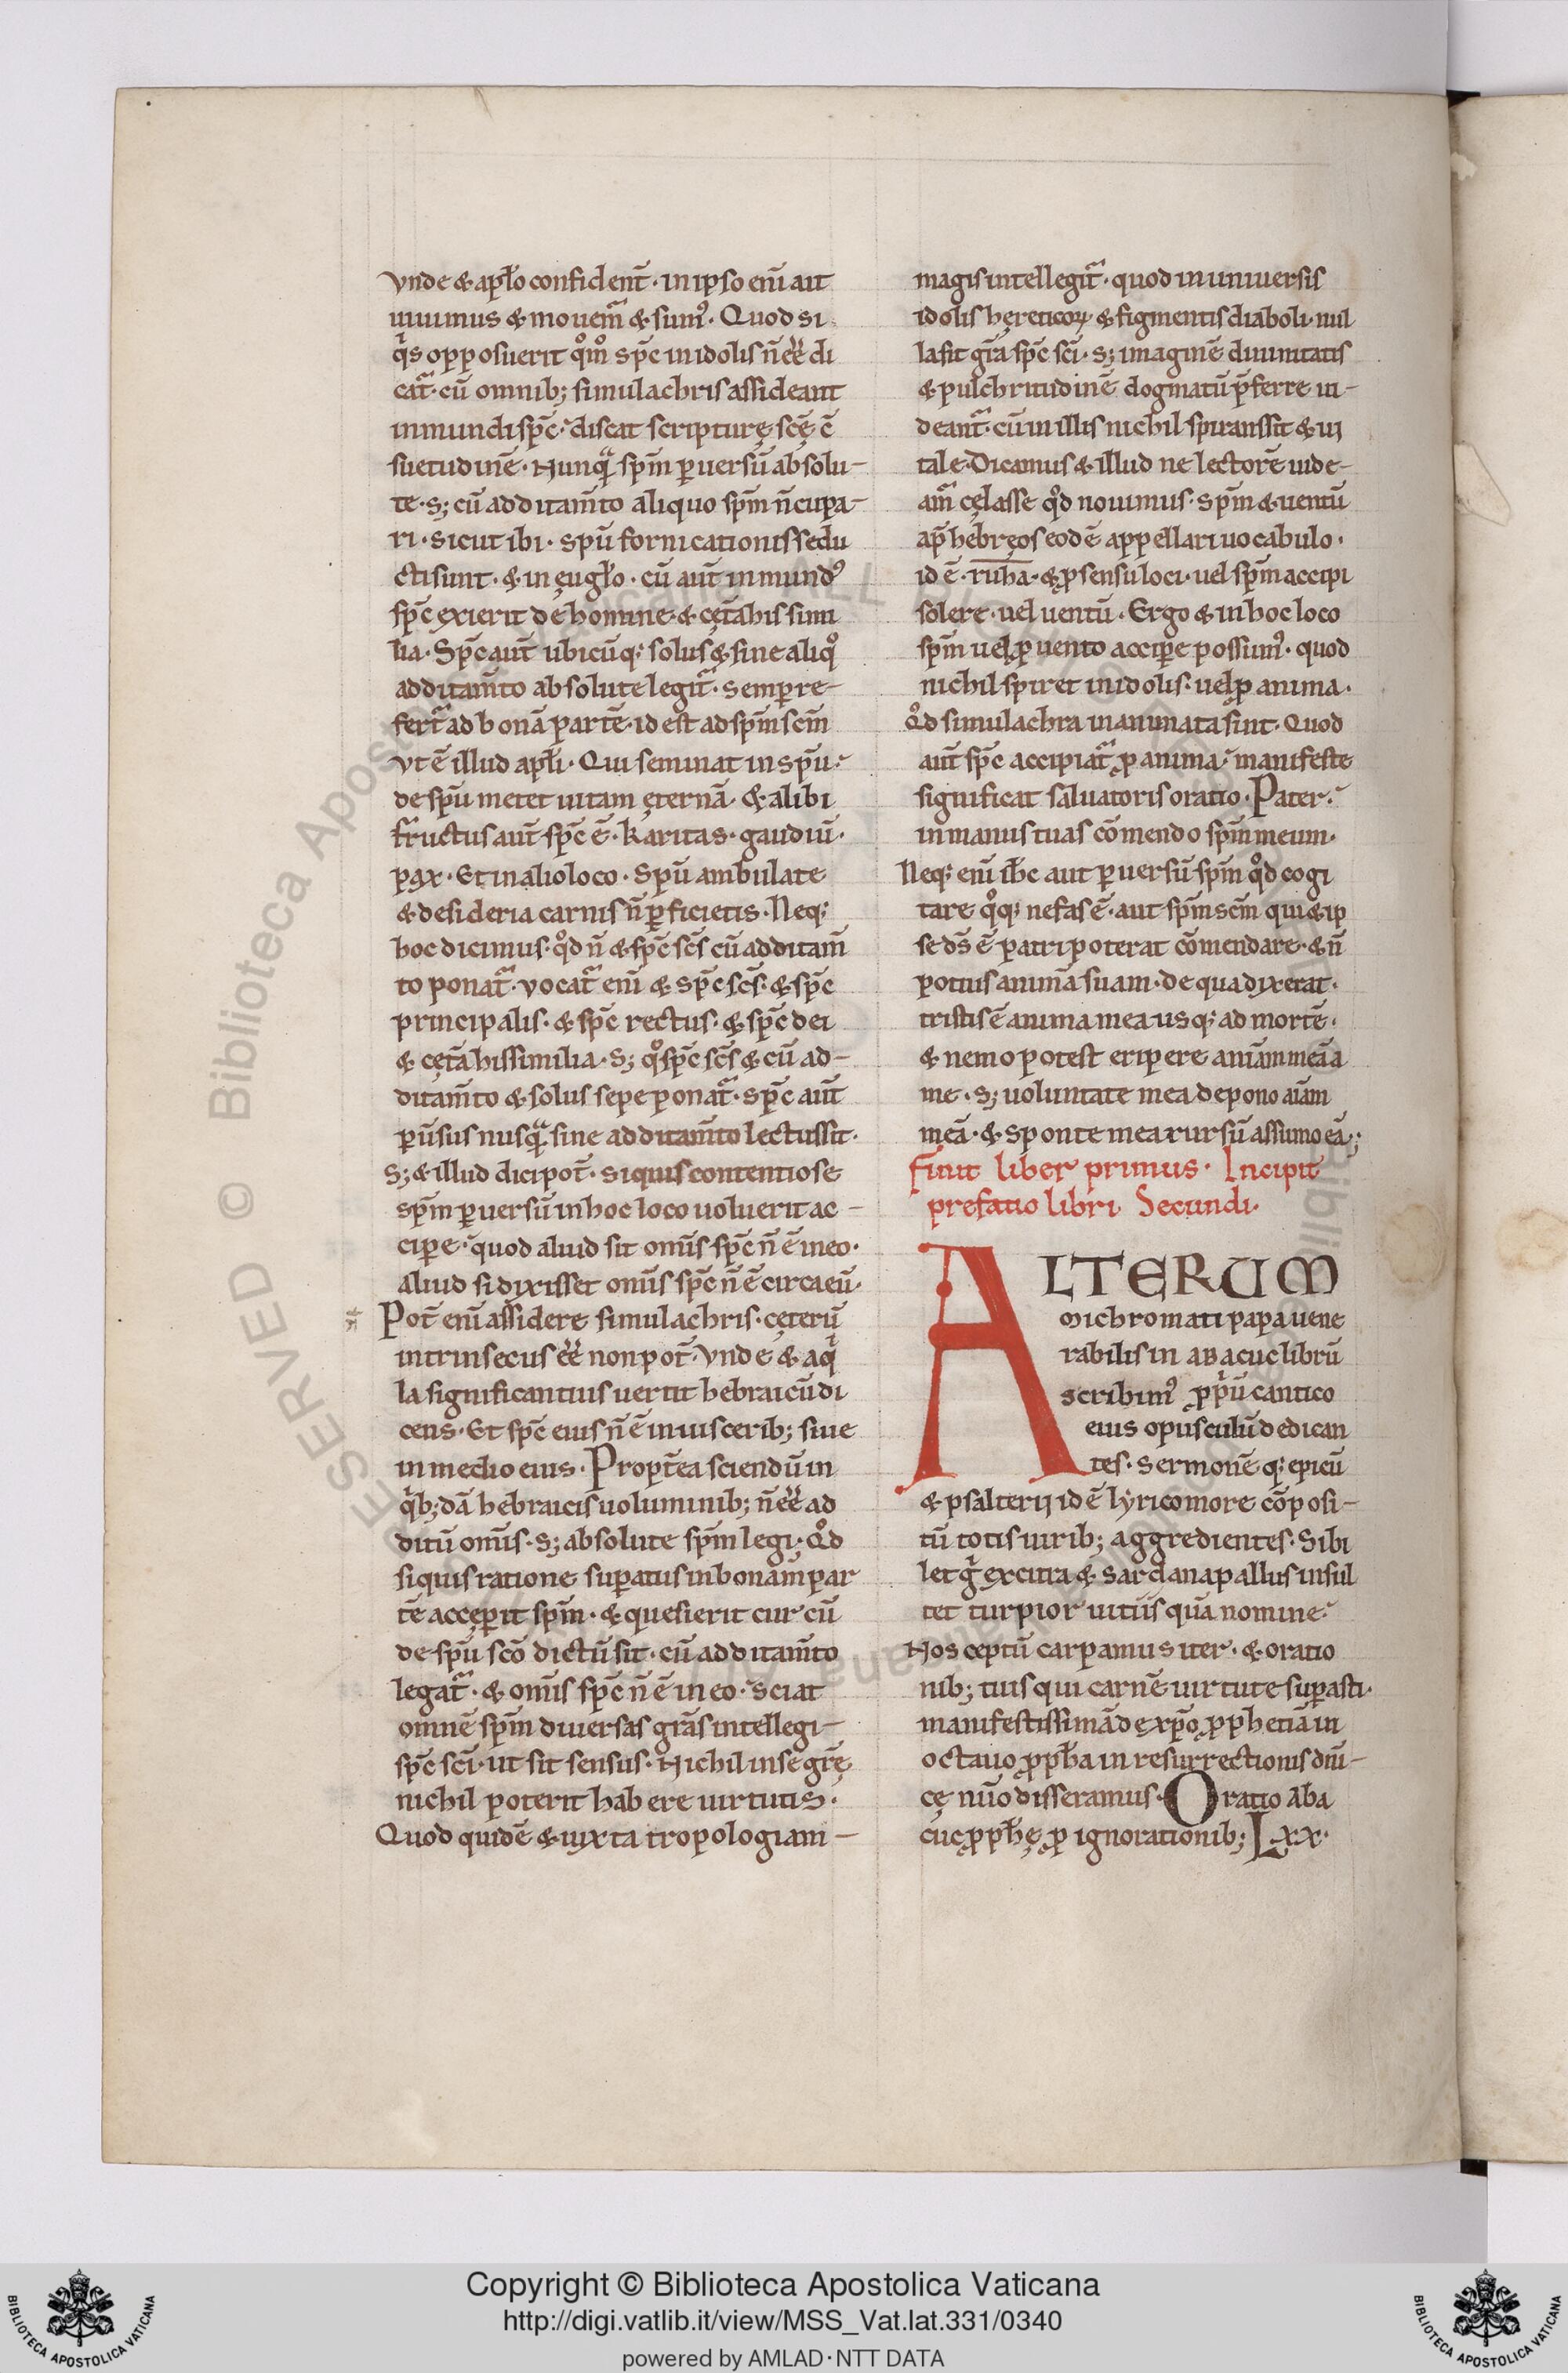 vnde & apło confident̃. in ipso enĩ ait
uiuimus & mouem̃ & sumꝰ. Quod si
q̃s opposuerit qͦmͦ sp̃c in idolis ñ eẽ di
cat̃. cũ omnib; simulachris assideant
inmundi sp̃c. discat scripturę scę̃ c̃
suetudinẽ. Nunq̃ sp̃m ꝑuersũ absolu-
te. s; cũ additam̃to aliquo sp̃m ñcupa-
ri. sicut ibi. spũ fornicationis sedu
cti sunt. & in ęugło. cũ aut̃ inmundꝰ
sp̃c exierit de homine. & cęt̃a his simi
lia. Sp̃c aut̃ ubicũq; solus & sine aliqͦ
additam̃to absolute legit̃. semꝑ re-
fert̃ ad bonã partẽ. id est ad sp̃m scm̃
vt ẽ illud apłi. Qui seminat in spũ.
de spũ metet uitam ęternã. & alibi
fructus aut̃ sp̃c ẽ. karitas. gaudiũ.
pax. Et in alio loco. Spũ ambulate
& desideria carnis ñ ꝑficietis. Neq;
hoc dicimus. qͦd ñ & sp̃c scs̃ cũ additam̃
to ponat̃. vocat̃ enĩ & sp̃c scs̃. & sp̃c
principalis. & sp̃c rectus. & sp̃c dei
& cęt̃a his similia. S; qͦ sp̃c scs̃ & cũ ad-
ditam̃to & solus sepe ponat̃. sp̃c aut̃
ꝑũsus nusq̃ sine additam̃to lectus sit.
S; & illud dici pot̃. si quis contentiose
sp̃m ꝑuersũ in hoc loco uoluerit ac-
ciꝑe. quod aliud sit om̃is sp̃c ñ ẽ in eo.
aliud si dixisset om̃is sp̃c ñ ẽ circa eũ.
Pot̃ enĩ assidere simulachris. cęterũ
intrinsecus eẽ non pot̃. vnde & aq̃
la significantius uertit hebraicũ di
cens. Et sp̃c eius ñ ẽ in uiscerib; siue
in medio eius. Propt̃ea sciendũ in
q̃b;dã hebraicis uoluminib; ñ eẽ ad
ditũ om̃is. s; absolute sp̃m legi. Qͦd
si quis ratione suꝑatus in bonam par
tẽ acceꝑit sp̃m. & quesierit cur cũ
de spũ sc̃o dictũ sit. cũ additam̃to
legat̃. & om̃is sp̃c ñ ẽ in eo. sciat
omnẽ sp̃m diuersas gr̃as intellegi-
sp̃c sc̃i. ut sit sensus. Nichil in se gr̃ę
nichil poterit habere uirtutis.
Quod quidẽ & iuxta tropologiam-
magis intellegit̃. quod in uniuersis
idolis hęreticoꝝ & figmentis diaboli. nul
la sit gr̃a sp̃c sc̃i. s; imaginẽ diuinitatis
& pulchritudinẽ dogmatũ p̃ferre ui-
deant̃. cũ in illis nichil spirans sit & ui
tale. Dicamus & illud ne lectorẽ uide-
am̃ cęlasse qͦd nouimus. Sp̃m & uentũ
ap̃ hebręos eodẽ appellari uocabulo.
id ẽ. ruha. & ꝓ sensu loci. uel sp̃m accipi
solere. uel uentũ. Ergo & in hoc loco
sp̃m uel ꝓ uento acciꝑe possumꝰ. quod
nichil spiret in idolis. uel ꝓ anima.
Qͦd simulachra inanimata sint. Quod
aut̃ sp̃c accipiat̃ ꝓ anima. manifeste
significat saluatoris oratio. Pater.
in manus tuas cõmendo sp̃m meum.
Neq; enĩ ih̃c aut ꝑuersũ sp̃m qͦd cogi
tare qͦq; nefas ẽ. aut sp̃m scm̃ qui & ip
se ds̃ ẽ patri poterat cõmendare. & ñ
potius animã suam. de qua dixerat.
tristis ẽ anima mea usq; ad mortẽ.
& nemo potest eripere aniãm meã a
me. s; uoluntate mea depono aiãm
meã. & sponte mea rursũ assumo eã.;
Finit liber primus. Incipit
prefatio libri Secundi.
ALTERUM
michromati papa uene
rabilis in abacuc librũ
scribimꝰ ꝓprũ cantico
eius opusculũ dedican
tes. Sermonẽ q; epicũ
& psalterii id ẽ lyrico more cõposi-
tũ totis uirib; aggredientes. Sibi
let g̃ excitra & sardanapallus insul
tet turpior uitiis quã nomine.
Nos ceptũ carpamus iter. & oratio
nib; tuis qui carnẽ uirtute suꝑasti.
manifestissimã de xp̃o ꝓphetiã in
octauo ꝓph̃a in resurrectionis dñi-
cę nũo disseramus. Oratio aba
cuc ꝓph̃ę ꝓ ignorationib; Lxx.
Copyright © Biblioteca Apostolica Vaticana
http://digi.vatlib.it/view/MSS_Vat.lat.331/0340
powered by AMLAD·NTT DATA